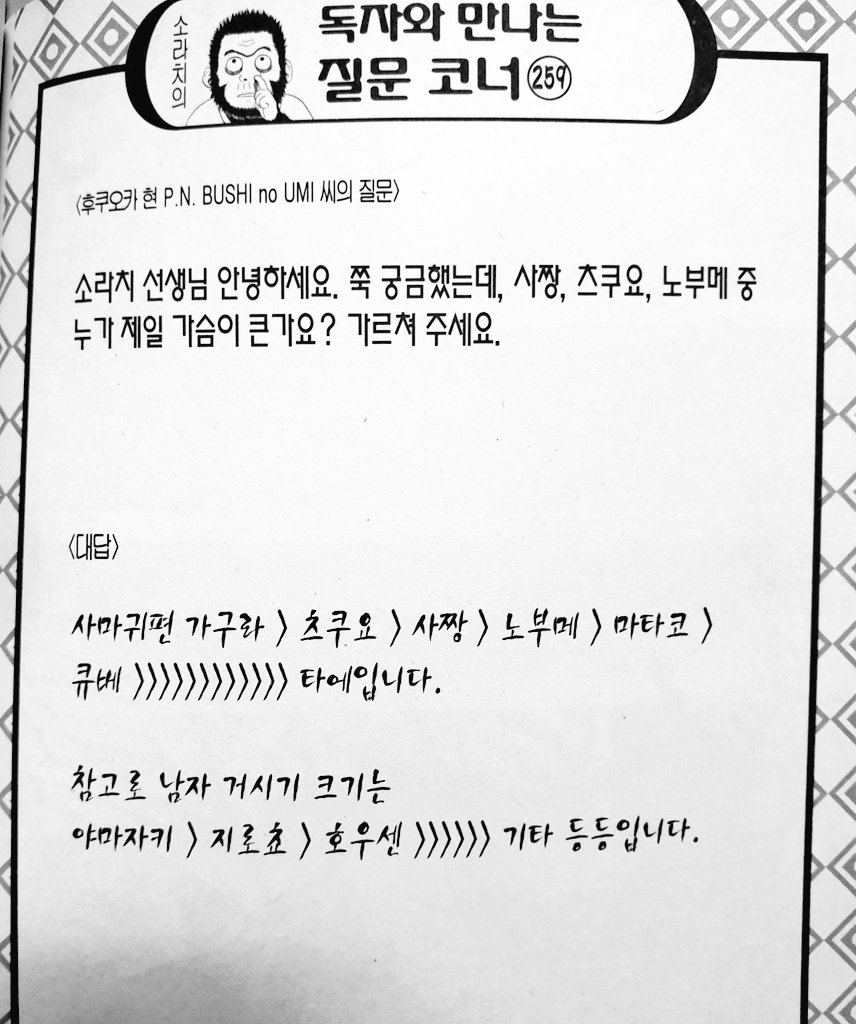 소라치의
독자와 만나는
질문 코너 259
〈후쿠오카 현 P.N. BUSHI no UMI 씨의 질문〉
소라치 선생님 안녕하세요. 쭉 궁금했는데, 사짱, 츠쿠요, 노부메 중
누가 제일 가슴이 큰가요? 가르쳐 주세요.
〈대답〉
사마귀편 가구라 > 츠쿠요 > 사짱 > 노부메 > 마타코 >
큐베 >>>>>>>>>>>> 타에입니다.
참고로 남자 거시기 크기는
야마자키 > 지로쵸 > 호우센 >>>>>> 기타 등등입니다.